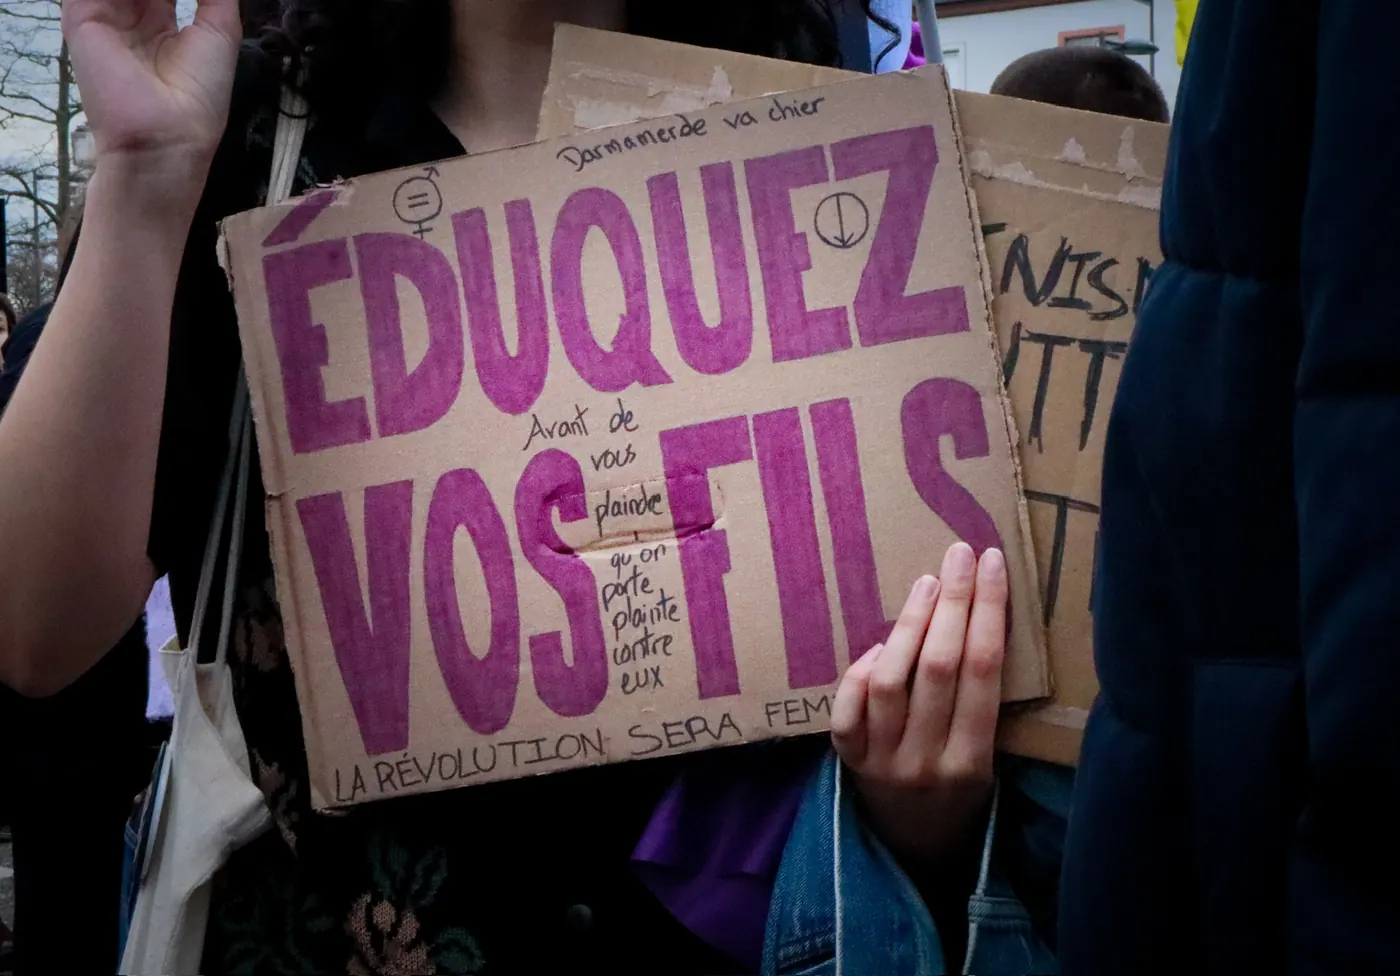 Darmamerde va chier
ÉDUQUEZ
Avant de
vous
plaindre
qu'on
porte
plainte
contre
eux
VOS FILS
LA RÉVOLUTION SERA FEM
NIS
TT